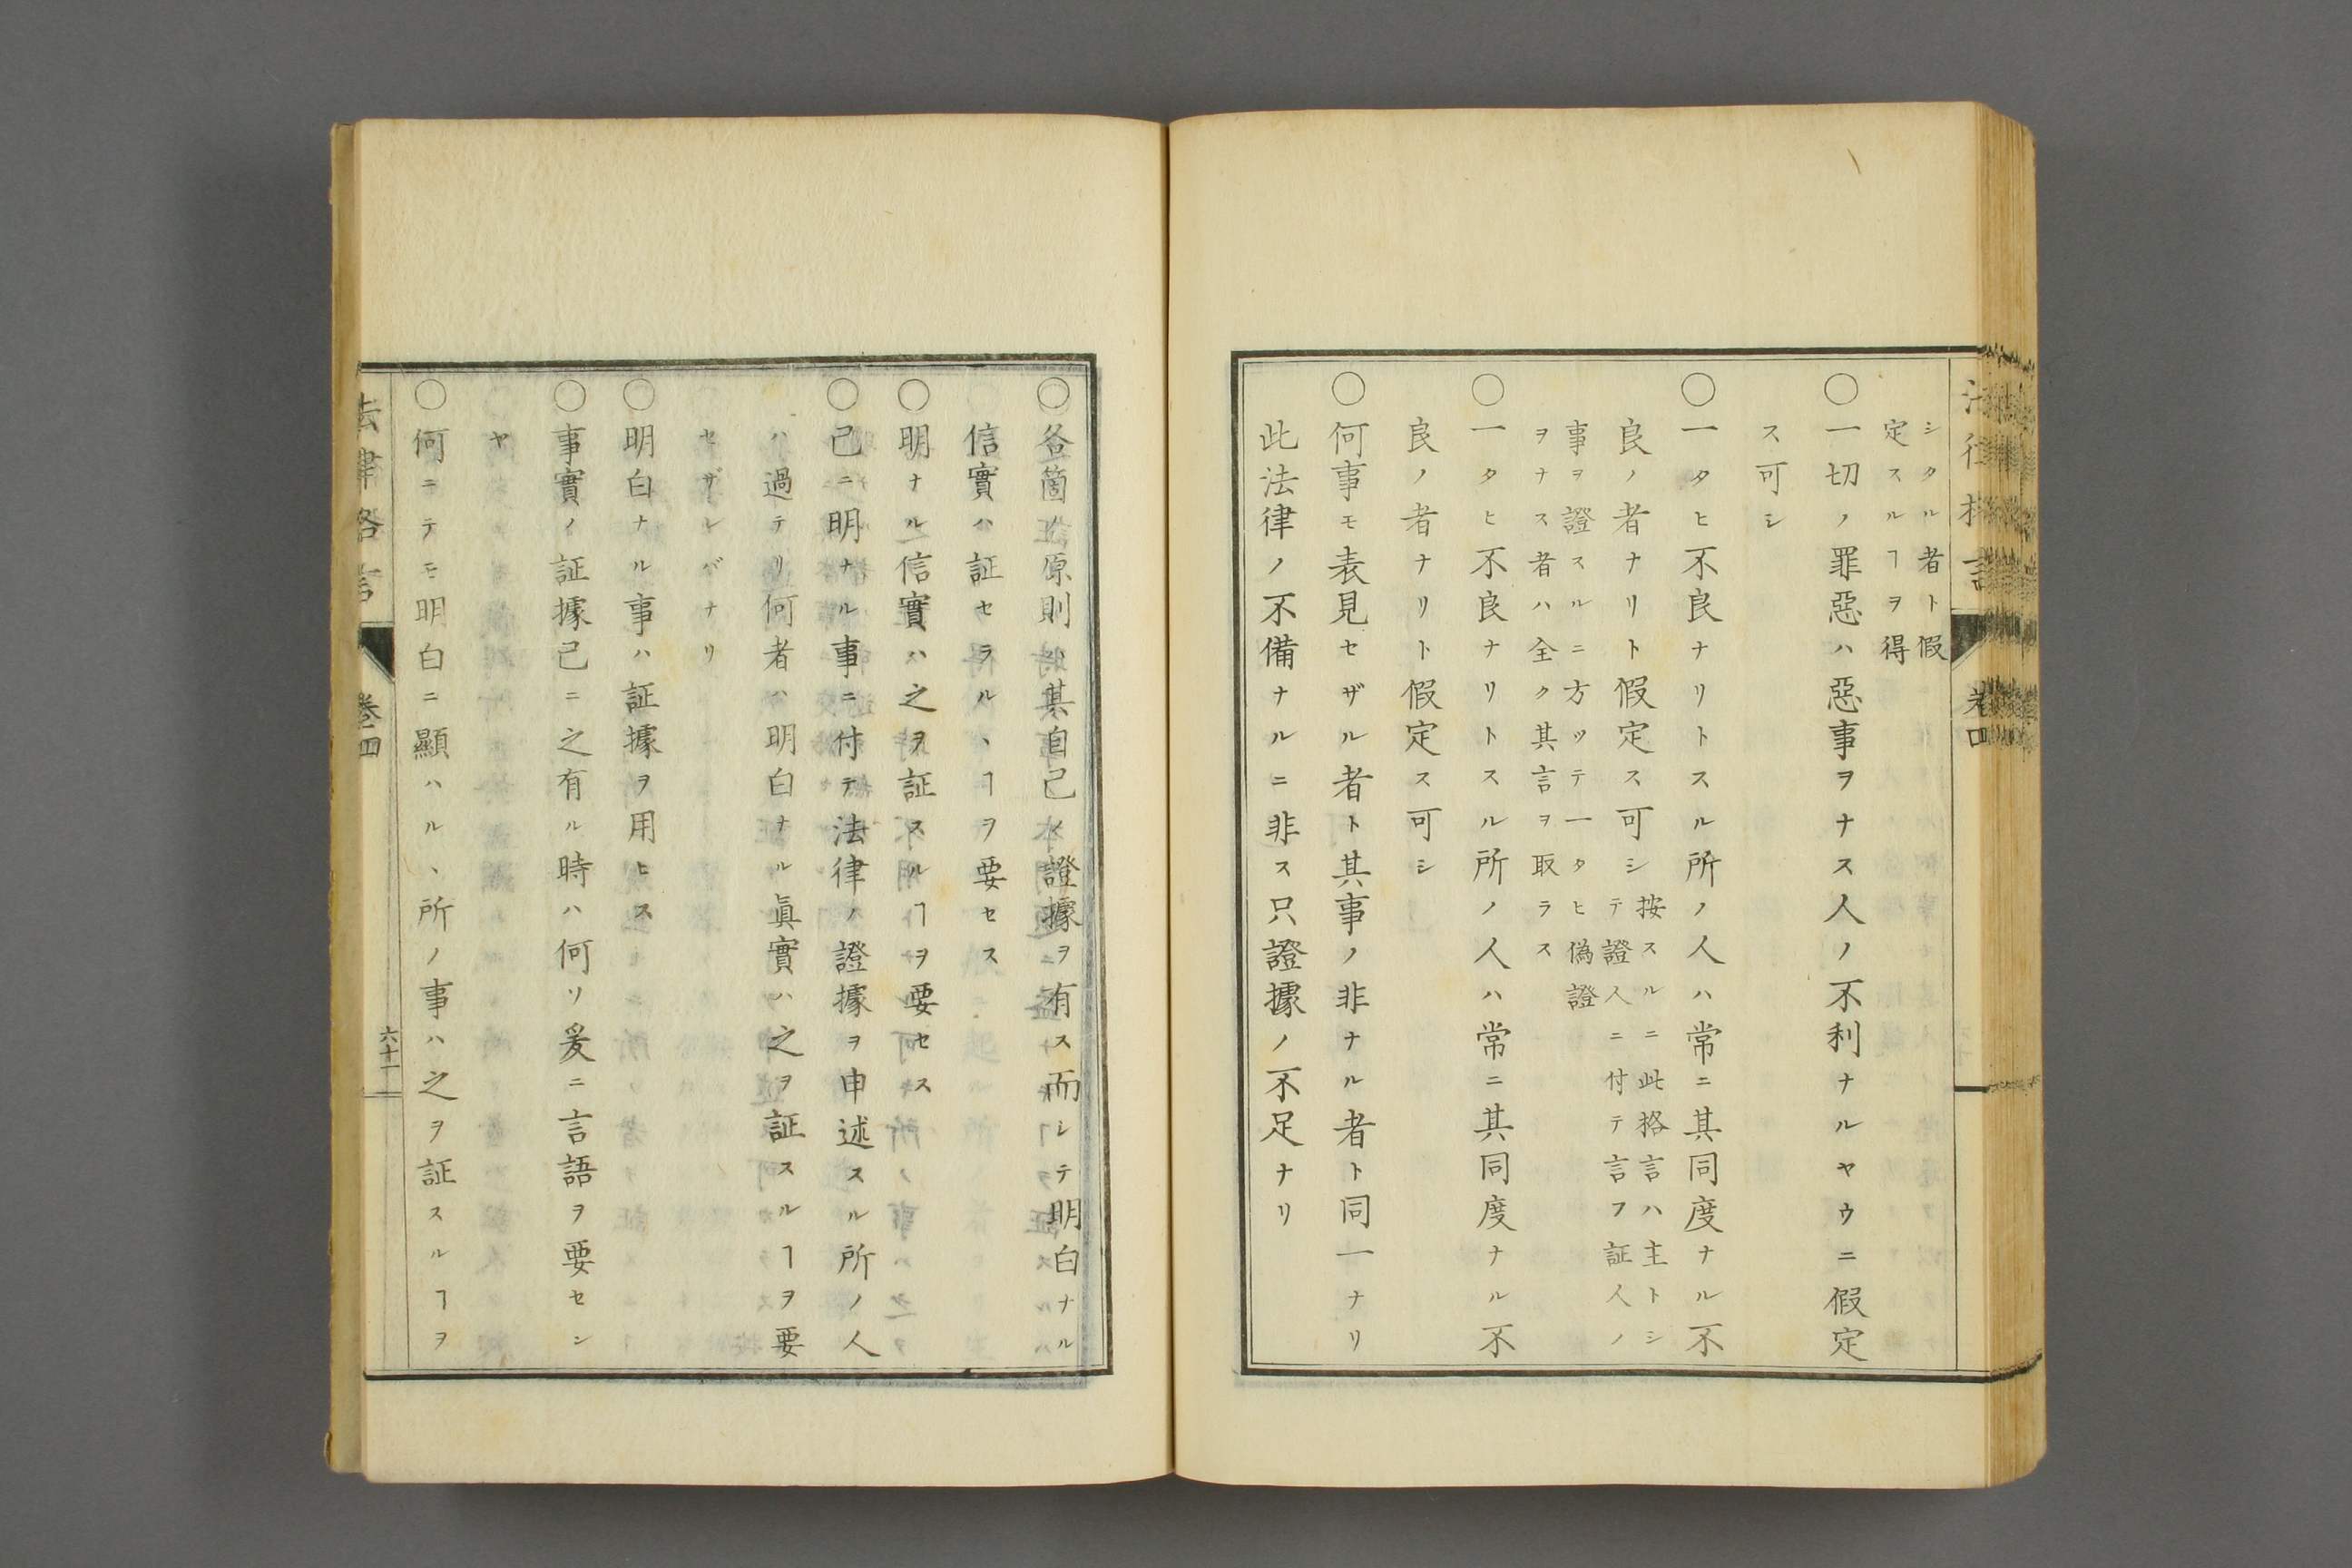 シタル者ト假
定スルヿヲ得
○一切ノ罪惡ハ惡事ヲナス人ノ不利ナルヤウニ假定
ス可シ
○一タヒ不良ナリトスル所ノ人ハ常ニ其同度ナル不
良ノ者ナリト假定ス可シ
按スルニ此格言ハ主トシ
テ證人ニ付テ言フ証人ノ
事ヲ證スルニ方ツテ一タヒ偽證
ヲナス者ハ全ク其言ヲ取ラス
○一タヒ不良ナリトスル所ノ人ハ常ニ其同度ナル不
良ノ者ナリト假定ス可シ
○何事モ表見セザル者ト其事ノ非ナル者ト同一ナリ
此法律ノ不備ナルニ非ス只證據ノ不足ナリ
卷四
○各箇ノ原則ハ其自己ノ證據ヲ有ス而シテ明白ナル
信實ハ証セラルヽヿヲ要セス
○明ナル信實ハ之ヲ証スルヿヲ要セス
○己ニ明ナル事ニ付テ法律ノ證據ヲ申述スル所ノ人
ハ過テリ何者ハ明白ナル眞實ハ之ヲ証スルヿヲ要
セザレバナリ
○明白ナル事ハ証據ヲ用ヒス
○事實ノ証據己ニ之有ル時ハ何ソ爰ニ言語ヲ要セン
ヤ
○何ニテモ明白ニ顯ハルヽ所ノ事ハ之ヲ証スルヿヲ
法律格言
卷四
六十一